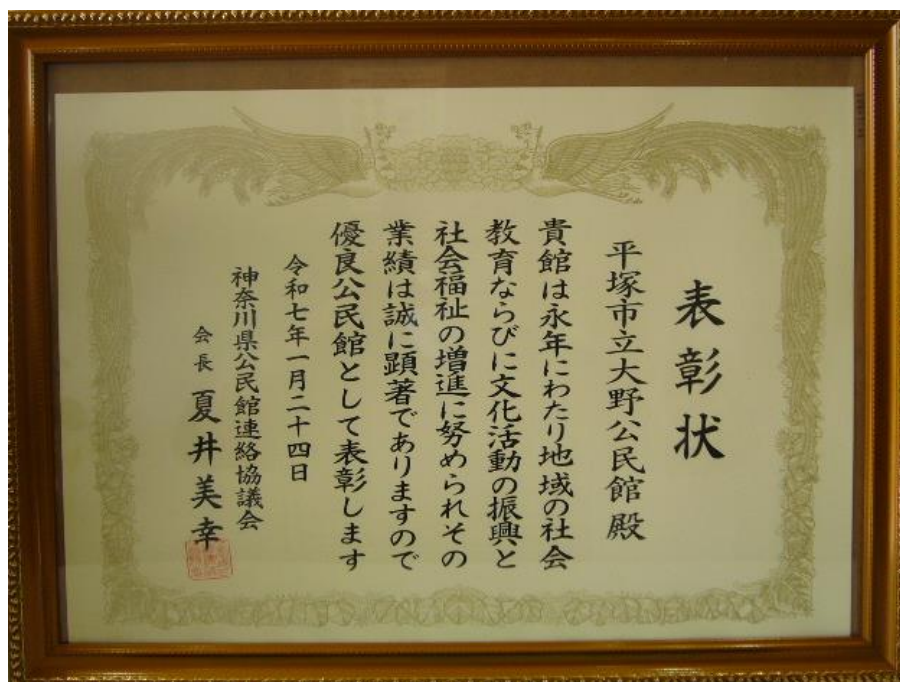 表彰状
平塚市立大野公民館殿
貴館は永年にわたり地域の社会
教育ならびに文化活動の振興と
社会福祉の増進に努められその
業績は誠に顕著でありますので
優良公民館として表彰します
令和七年一月二十四日
神奈川県公民館連絡協議会
会長 夏井美幸